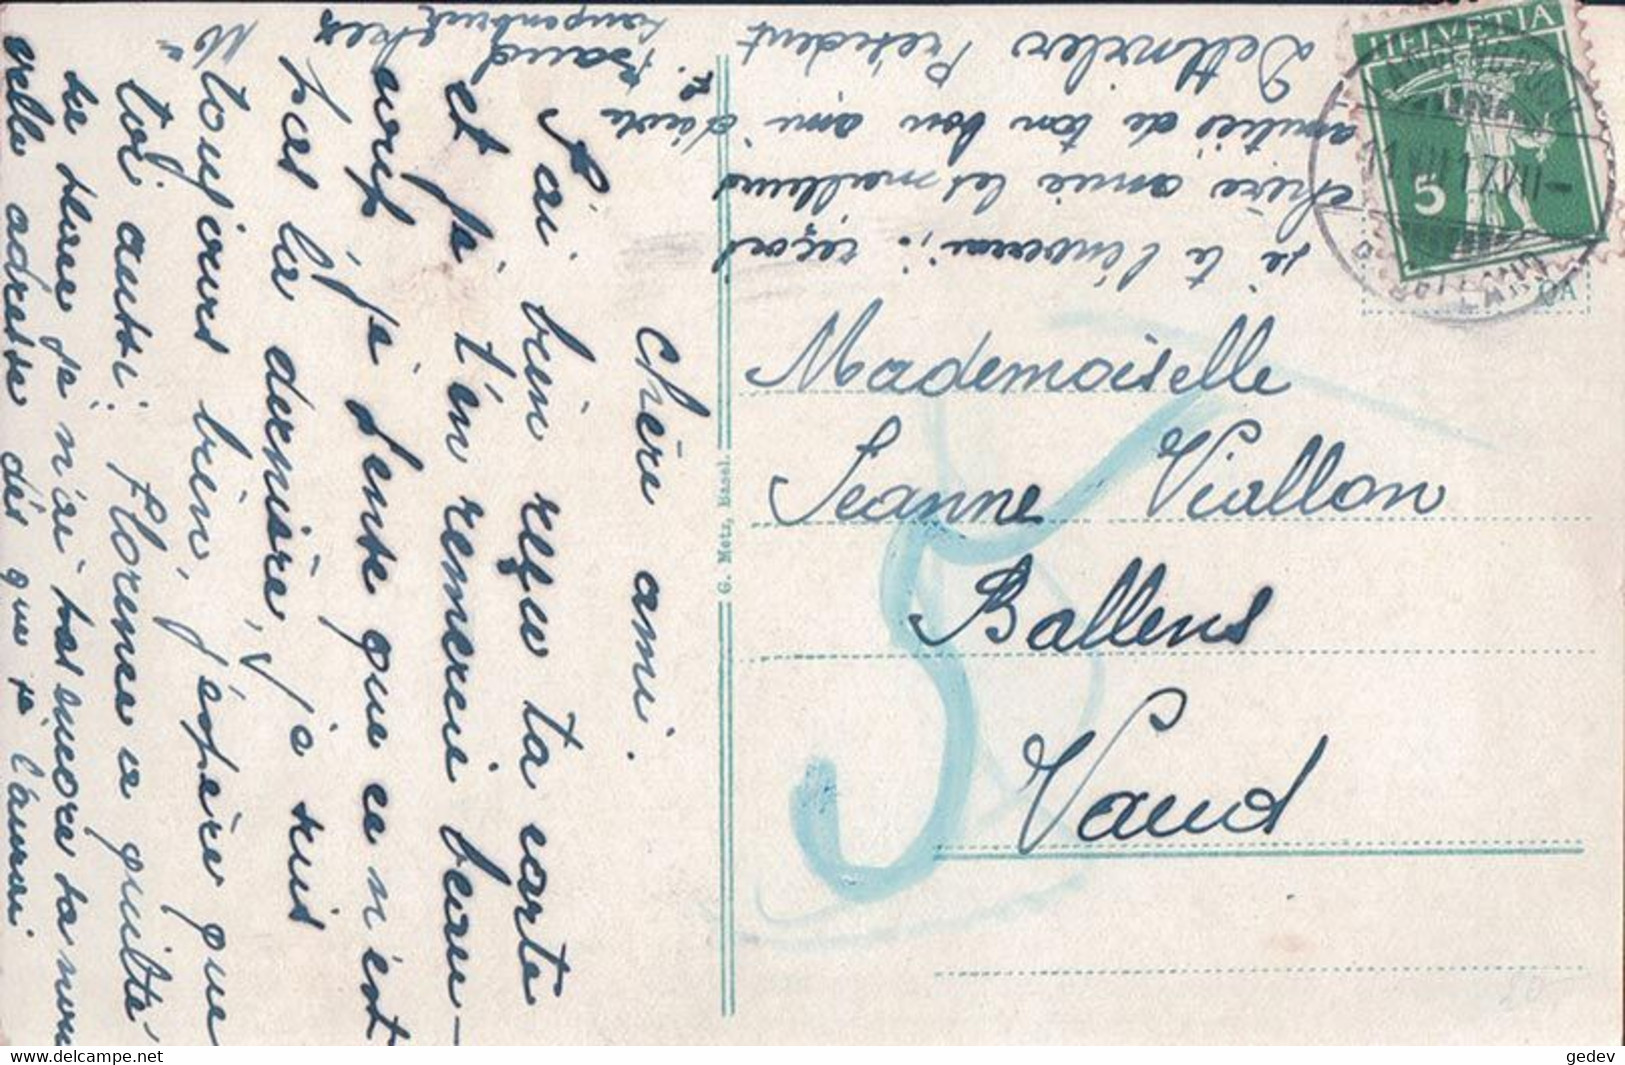 Chère ami.
J'ai bein reçu ta carte
et je t'en remercie beau-
coup, je sense que ce n'est
pas la dernière, je suis
toujours bien, j'éspère que
toi aussi. Florence a quitté
je n'ai pas encore ta nou
velle adresse dés que je l'aurai
je te l'enverrai; reçois
chère amie les meilleurs
amitiés de ton bon ami
Dettwiler Président
Mademoiselle
Jeanne Viallon
Ballens
Vaud
G. Metz, Basel.
HELVETIA
5
gedev